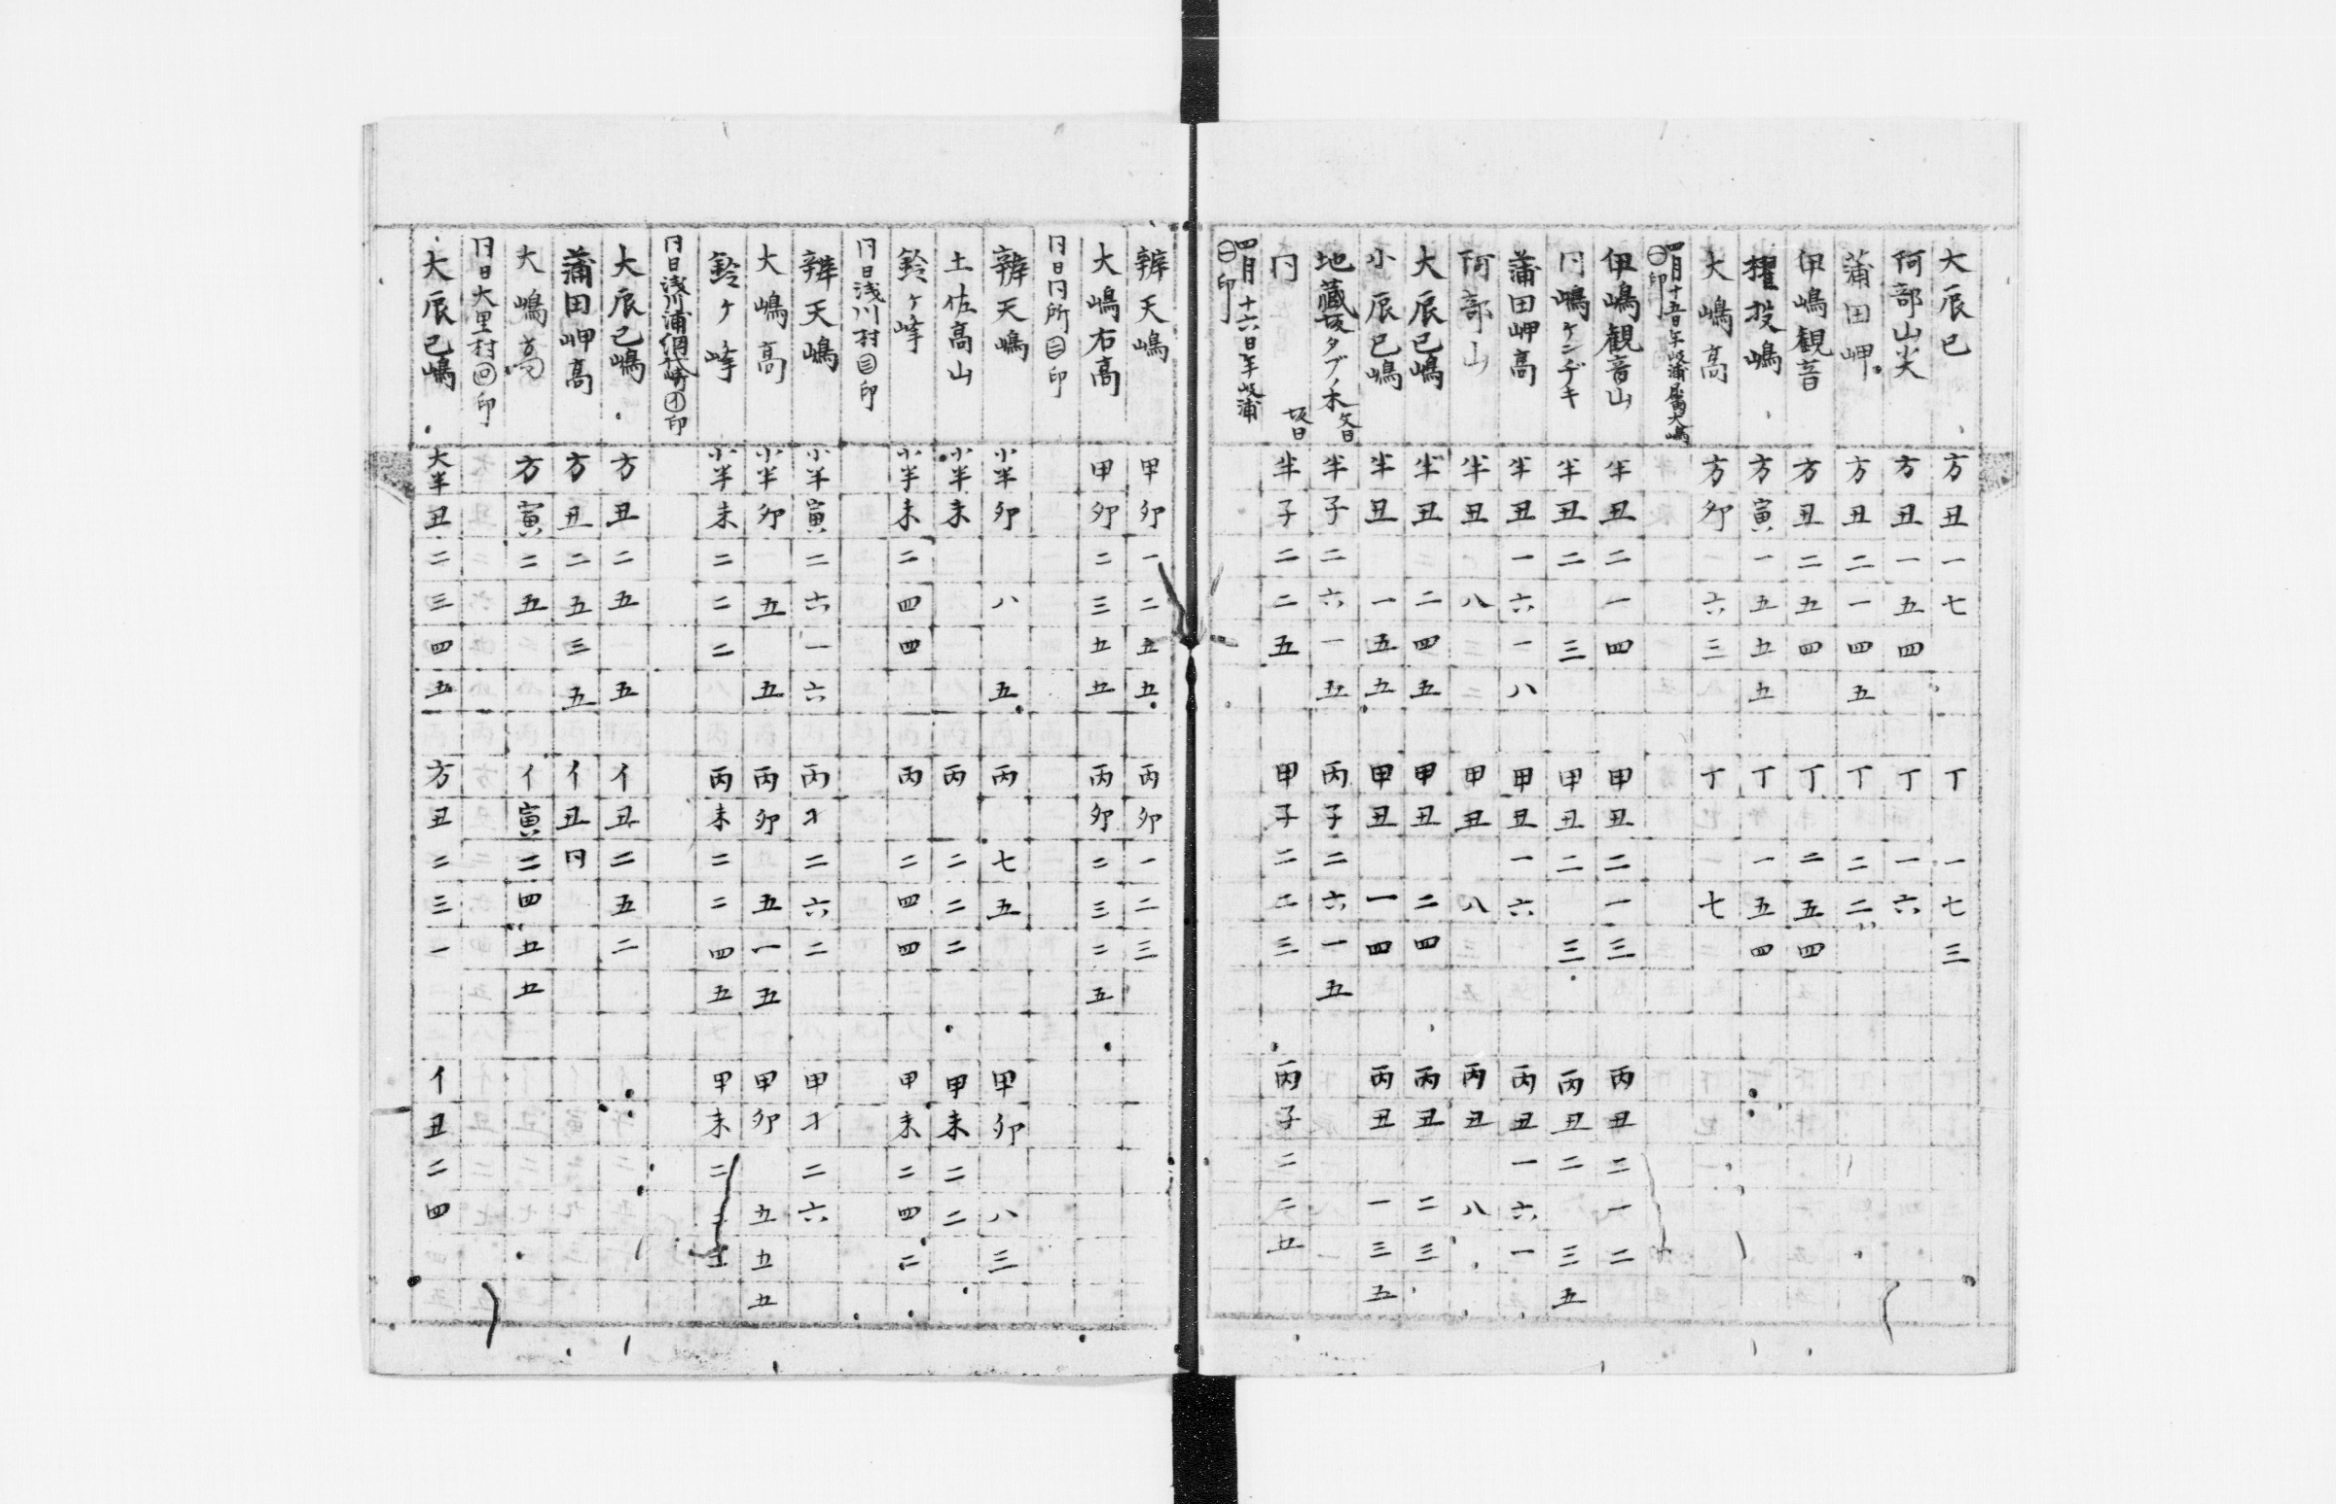 大辰巳 方丑一七 丁 一七三
阿部山尖 方丑一五四 丁 一六
蒲田岬 方丑二一四五 丁 二二
伊嶋観音 方丑二五四 丁 二五四
櫂投嶋 方寅一五五五 丁 一五四
大嶋高 方卯 六三 丁 七
四月十五日牟岐浦属大嶋㊀印
伊嶋観音山 半丑二一四 甲丑二一三 丙丑二一二
冂嶋ケンヂキ 半丑二 三 甲丑二 三 丙丑二 三五
蒲田岬高 半丑一六一八 甲丑一六 丙丑一六一
阿部山 半丑 八 甲丑 八 丙丑 八
大辰巳嶋 半丑 二四五 甲丑 二四 丙丑 二三
小辰巳嶋 半丑 一五五 甲丑 一四 丙丑 一三五
地蔵坂タブノ木 半子二六一五 丙子二六一五
冂 半子二二五 甲子二二三 丙子二二五
四月十六日牟岐浦㊀印
辨天嶋 甲卯一二五五 丙卯一二三
大嶋右高 甲卯二三五五 丙卯二三二五
冂日冂所㊁印
辨天嶋 小半卯 八 五 丙 七五 甲卯 八三
土佐高山 小半未 丙 二二二 甲未二二
鈴ヶ峰 小半未二四四 丙 二四四 甲未二四二
冂日浅川村㊂印
辨天嶋 小半寅二六一六 丙才二六二 甲才二六
大嶋高 小半卯 五 五 丙卯 五一五 甲卯 五五五
鈴ヶ峰 小半未二二二 丙未二二四五 甲未二二
冂日浅川浦網代崎㋑印
大辰巳嶋 方丑二五 五 イ丑二五二
蒲田岬高 方丑二五三五 イ丑冂
大嶋高 方寅二五 イ寅二四五五
冂日大里村㊃印
大辰巳嶋 大半丑二三四五 方丑二三一 イ丑二四